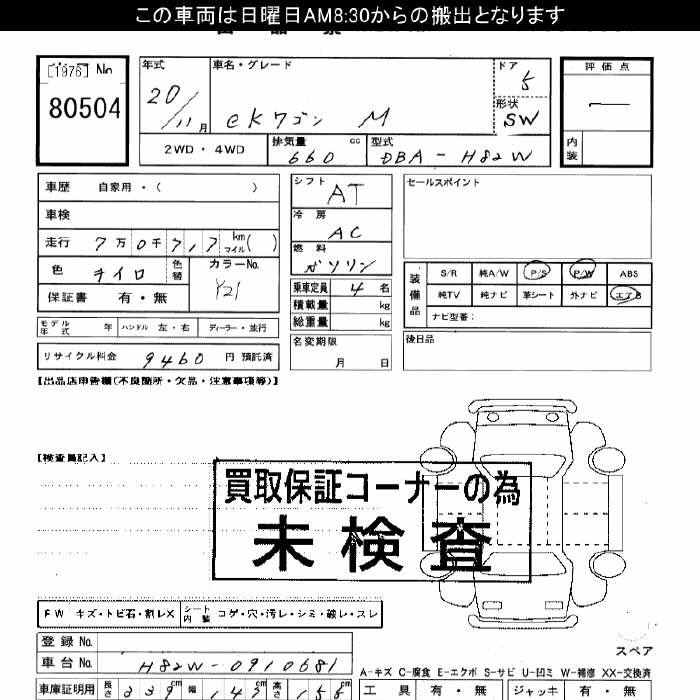 この車両は日曜日AM8:30からの搬出となります
[1976] No
80504
年式
20/11月
車名・グレード
eKワゴン M
ドア
5
形状
SW
評価点
内装
2WD・4WD
排気量
660 cc
型式
DBA-H82W
車歴 自家用・( )
車検
走行 7万0千717 km マイル ( )
色
キイロ
色替
カラーNo.
Y21
保証書 有・無
モデル年式 年 ハンドル 左・右 ディーラー・並行
リサイクル料金 9460 円 預託済
シフト
AT
冷房
AC
燃料
ガソリン
乗車定員 4 名
積載量 kg
総重量 kg
名変期限
月 日
セールスポイント
装備品
S/R 純A/W P/S P/W ABS
純TV 純ナビ 革シート 外ナビ エアB
ナビ型番:
後日品
【出品店申告欄(不良箇所・欠品・注意事項等)】
【検査員記入】
買取保証コーナーの為
未検査
FW キズ・トビ石・割レX
シート内装 コゲ・穴・汚レ・シミ・破レ・スレ
登録No.
車台No. H82W-0910681
スペア
A-キズ C-腐食 E-エクボ S-サビ U-凹ミ W-補修 XX-交換済
車庫証明用 長さ 339cm 幅 147cm 高さ 155
工具 有・無 ジャッキ 有・無